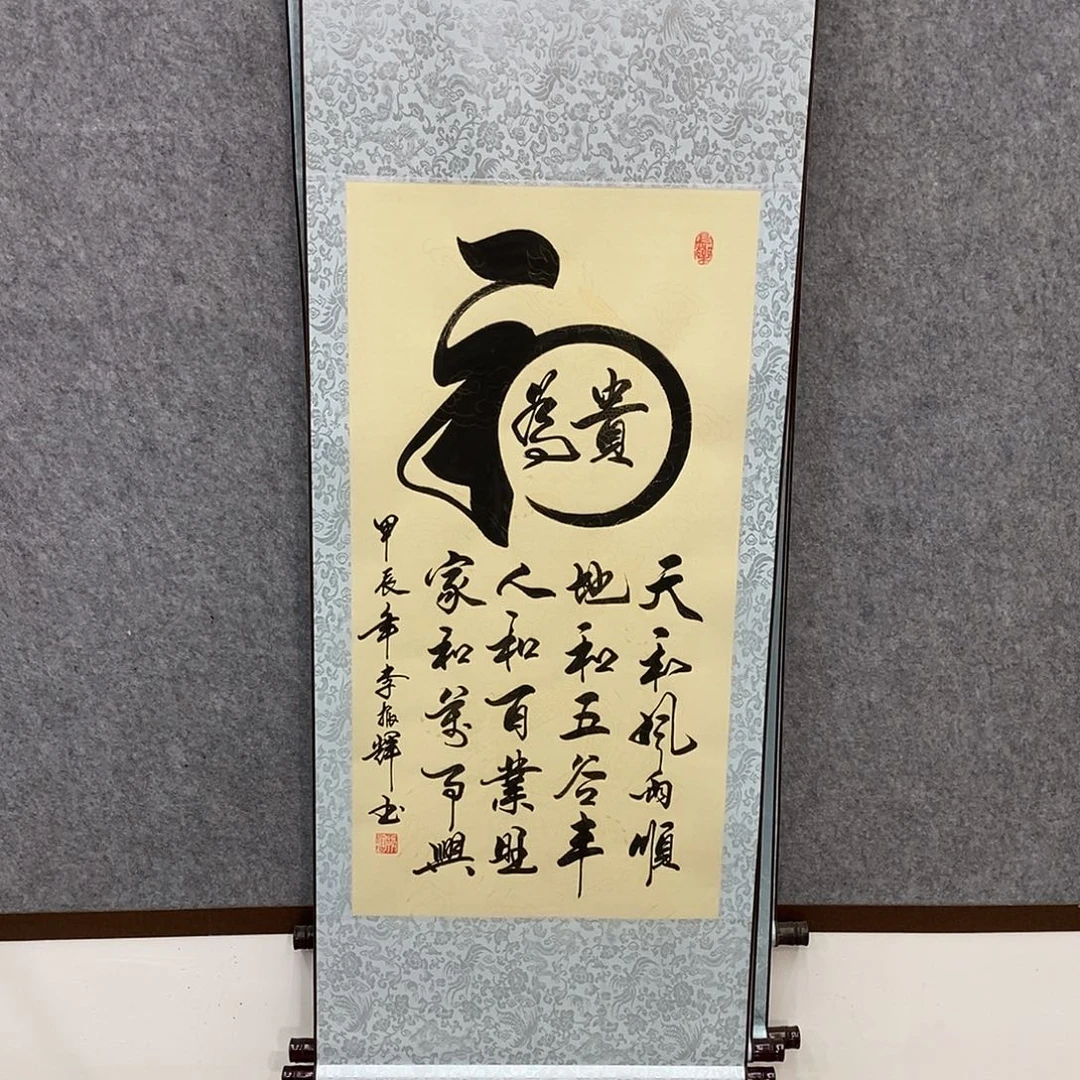 和
為貴
天和風雨順
地和五谷丰
人和百業旺
家和萬事興
甲辰年李振輝书